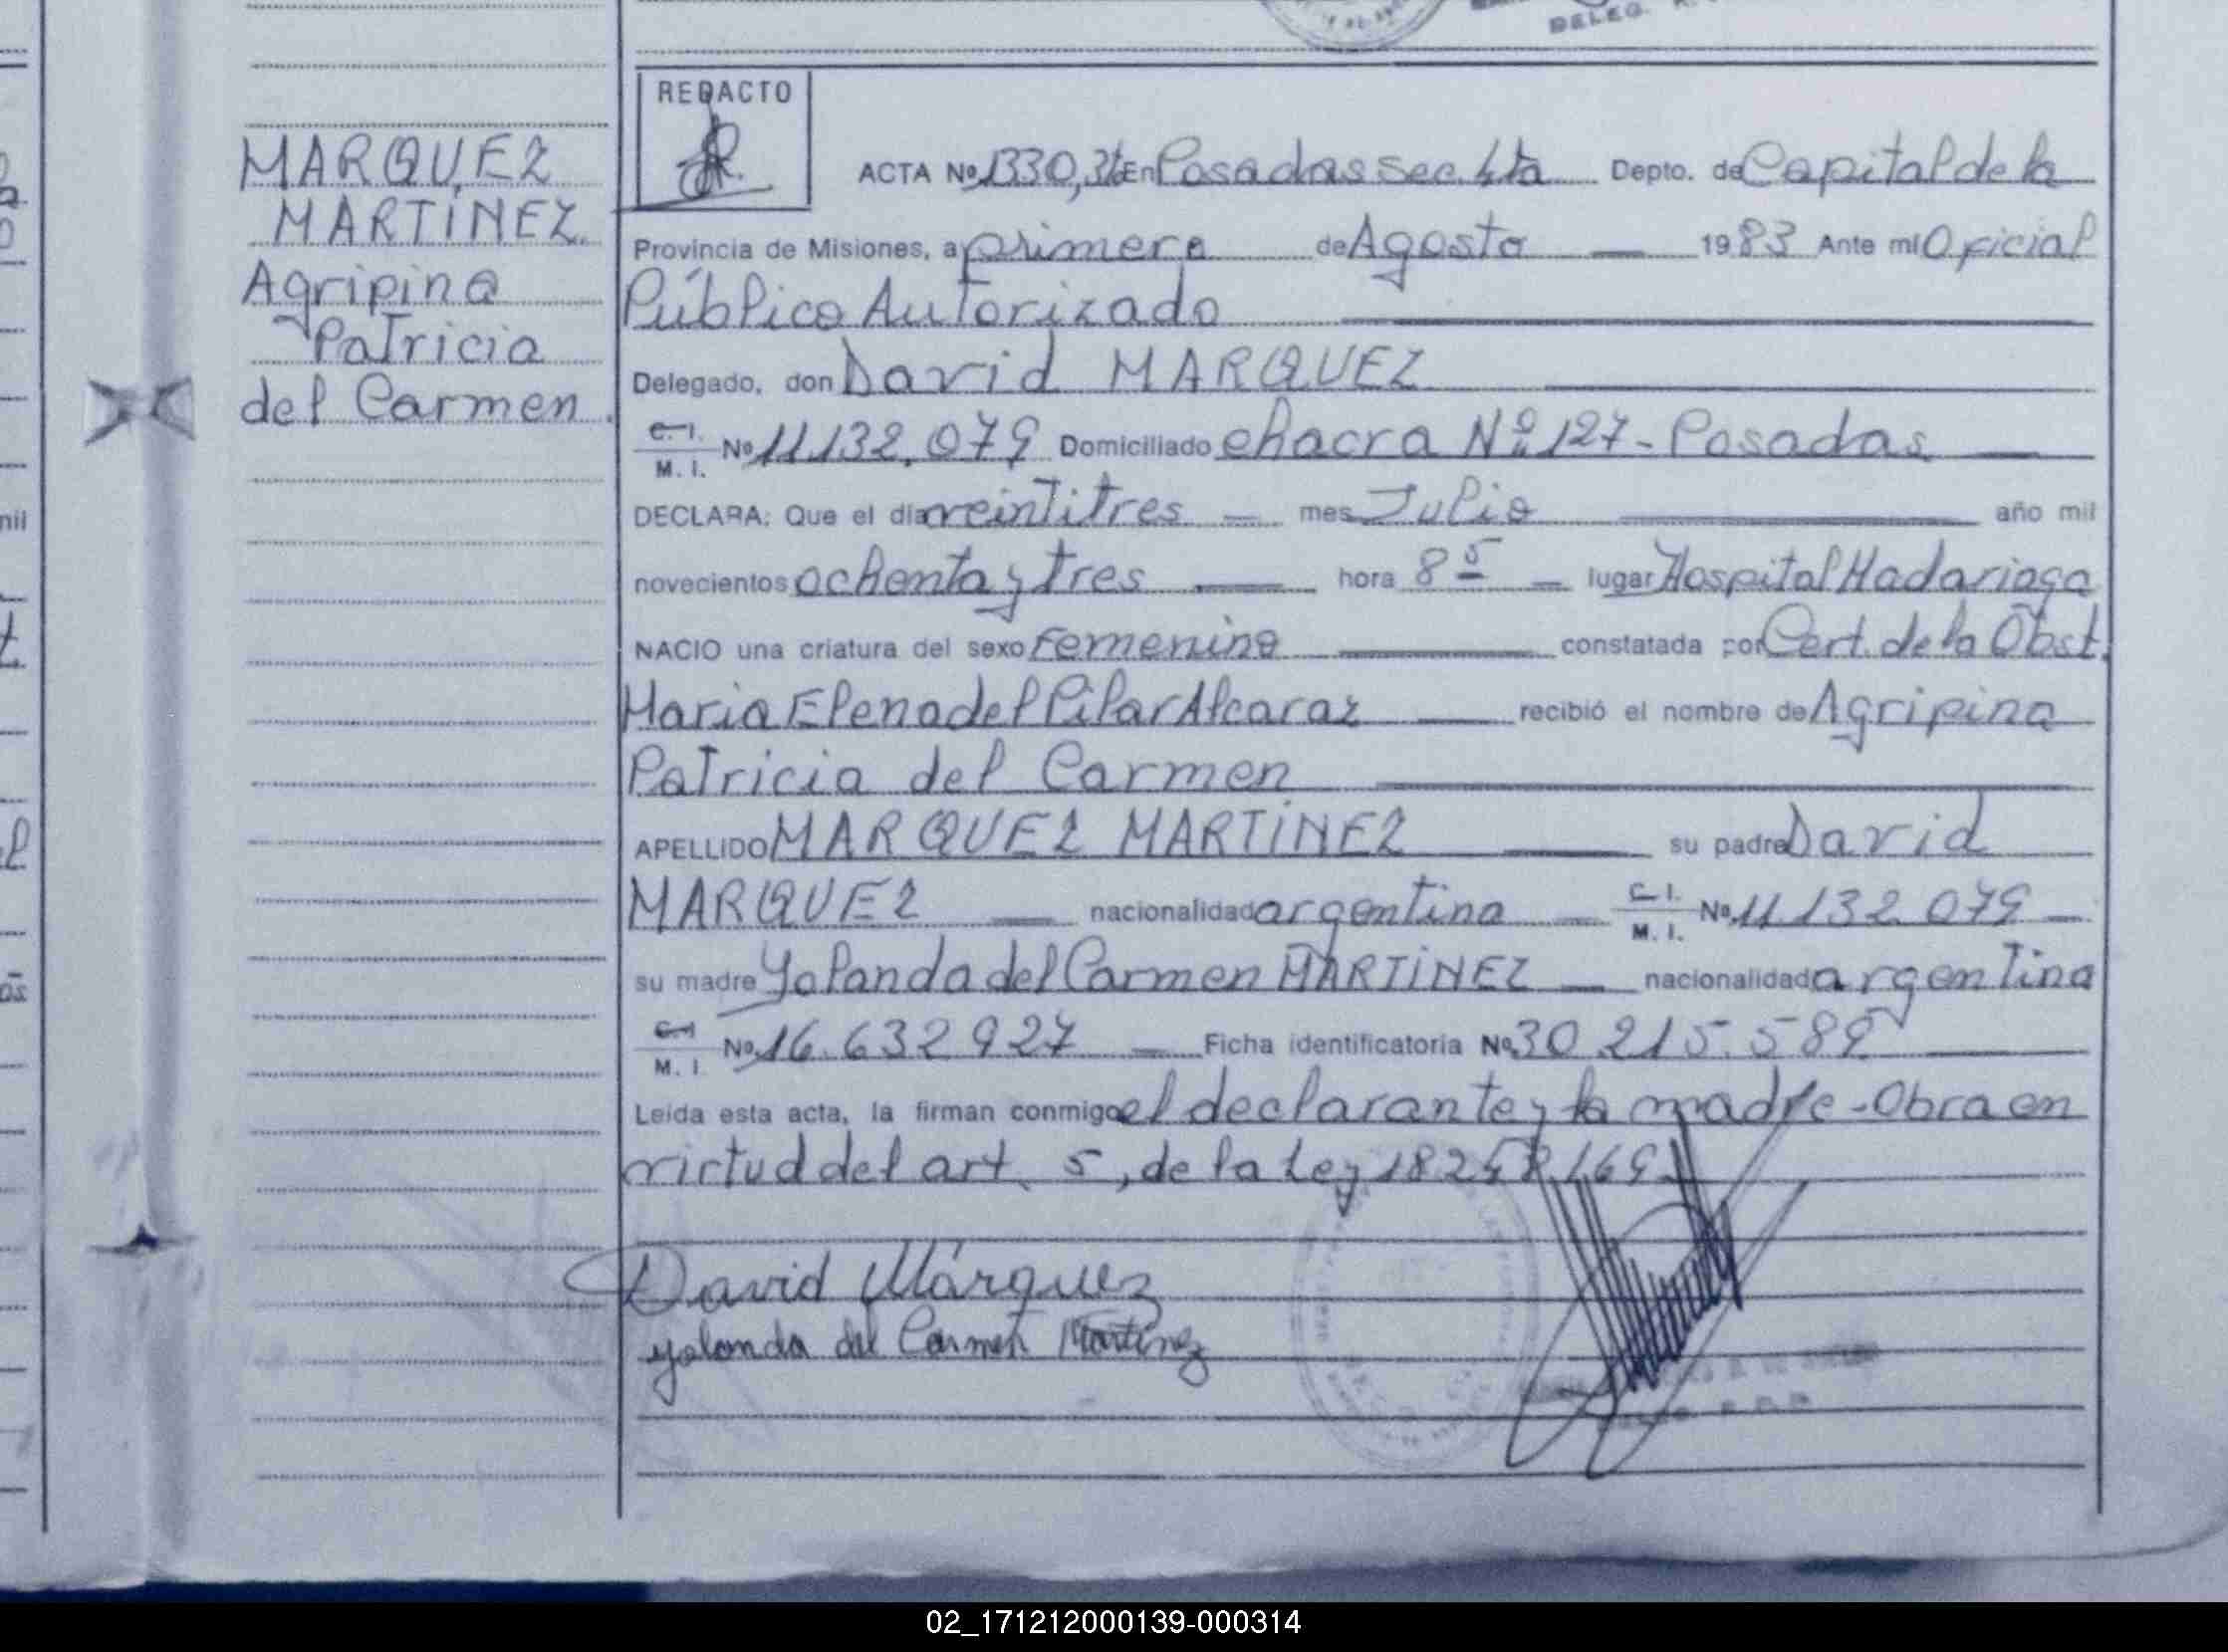 DELEG.
REDACTO
MARQUEZ
MARTÍNEZ
Agripina
Patricia
del Carmen.
ACTA Nº 1330, En Posadas sec. 4ta Depto. de Capital de la
Provincia de Misiones, a primero de Agosto — 1983 Ante mí Oficial
Público Autorizado
Delegado, don David MARQUEZ
C.I. M.I. Nº 11.132.079 Domiciliado chacra Nº 127 - Posadas
DECLARA: Que el día veintitres — mes Julio año mil
novecientos ochenta y tres — hora 8 5 — lugar Hospital Madariaga
NACIO una criatura del sexo Femenino constatada por Cert. de la Obst.
Maria Elena del Pilar Alcaraz — recibió el nombre de Agripina
Patricia del Carmen
APELLIDO MARQUEZ MARTÍNEZ su padre David
MARQUEZ — nacionalidad argentina — C.I. M.I. Nº 11.132.079 —
su madre Yolanda del Carmen MARTÍNEZ — nacionalidad argentina
C.I. M.I. Nº 16.632.927 — Ficha identificatoria Nº 30.215.589
Leída esta acta, la firman conmigo el declarante y la madre - Obra en
virtud del art. 5, de la Ley
David Márquez
Yolanda del Carmen Martínez
02_171212000139-000314